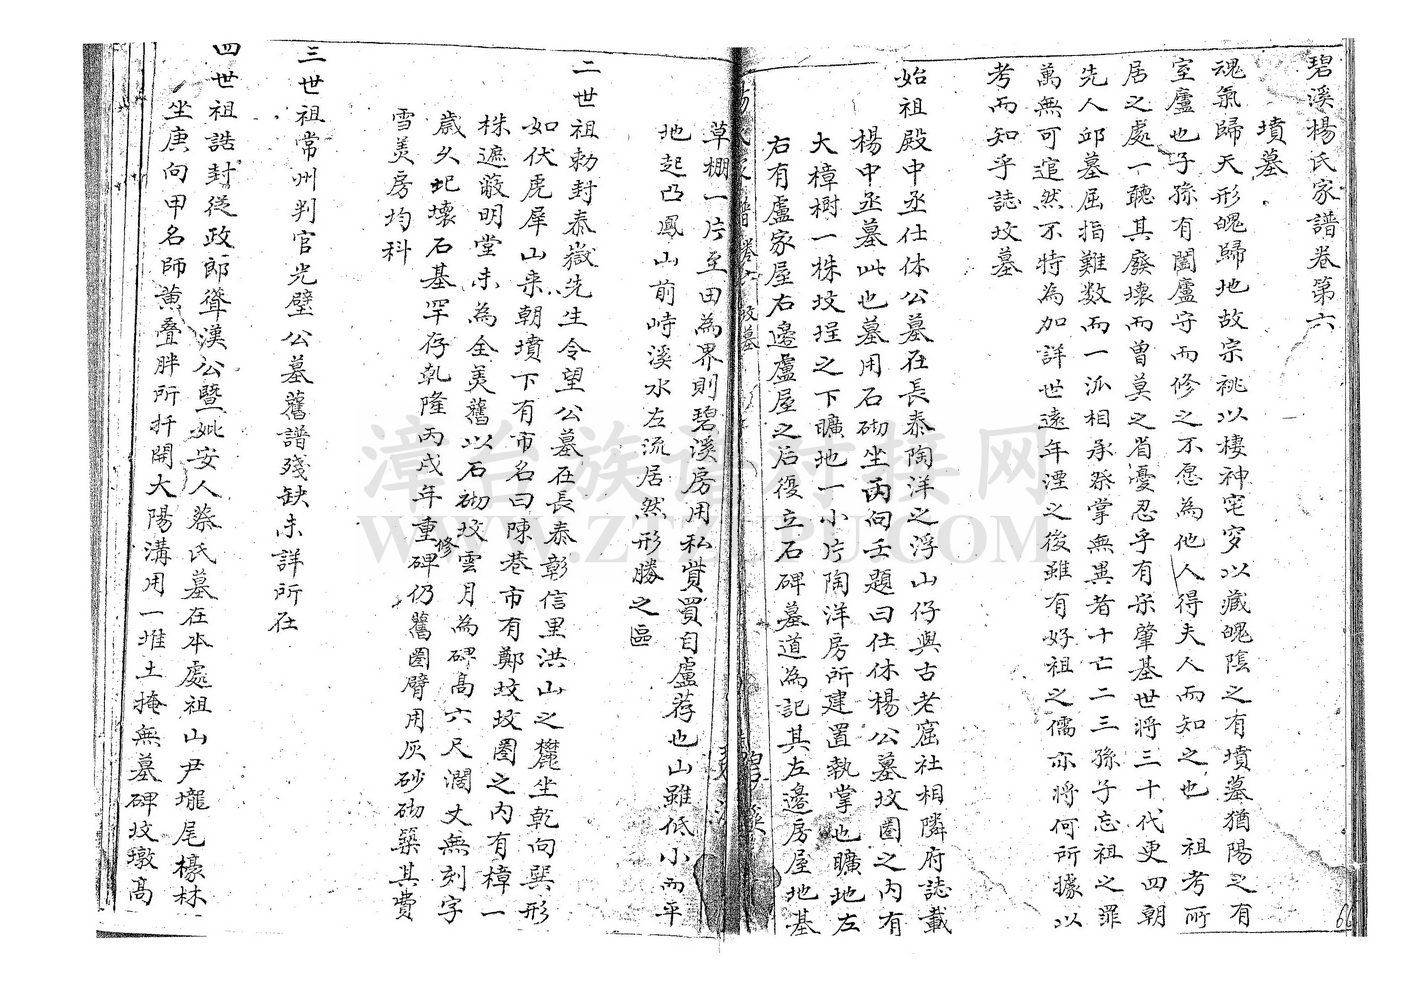 碧溪楊氏家譜卷第六
墳墓
魂氣歸天形魄歸地故宗祧以棲神窀穸以藏魄陰之有墳墓猶陽之有
室廬也子孫有闔廬守而修之不愿為他人得夫人而知之也 祖考所
居之處一聽其廢壞而曾莫之省憂忍乎有宋肇基世將三十代更四朝
先人邱墓屈指難数而一派相承祭掌無異者十亡二三孫子忘祖之罪
萬無可逭然不特為加詳世遠年湮之後雖有好祖之儒亦將何所據以
考而知乎誌坟墓
始祖殿中丞仕休公墓在長泰陶洋之浮山仔與古老窟社相隣府誌載
楊中丞墓此也墓用石砌坐丙向壬題曰仕休楊公墓坟圈之内有
大樟樹一株坟埕之下曠地一小片陶洋房所建置執掌也曠地左
右有盧家屋右邊盧屋之后復立石碑墓道為記其左邊房屋地基
草棚一片至田為界則碧溪房用私貲買自盧荐也山雖低小而平
地起凸鳳山前峙溪水左流居然形勝之區
二世祖勅封泰嶽先生令望公墓在長泰彰信里洪山之麓坐乾向巽形
如伏虎犀山来朝墳下有市名曰陳巷市有鄭坟坟圈之内有樟一
株遮蔽明堂未為全美舊以石砌坟雲月為碑高六尺濶丈無刻字
歲久圯壞石基罕存乾隆丙戌年重修碑仍舊圈臂用灰砂砌築其費
雪美房均科
三世祖常州判官光璧公墓舊譜殘缺未詳所在
四世祖誥封從政郎聳漢公暨妣安人蔡氏墓在本處祖山尹壠尾檺林
坐庚向甲名師黄叠胖所扦開大陽溝用一堆土掩無墓碑坟墩高
漳台族谱对接网
WWW.ZTZUPU.COM
66